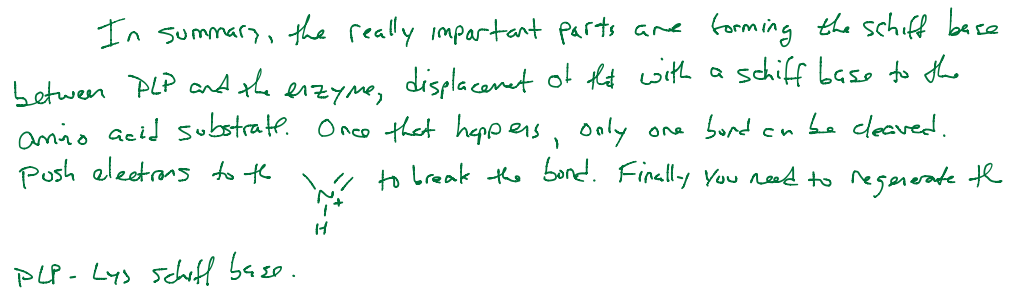 In summary, the really important parts are forming the schiff base
between PLP and the enzyme, displacement of that with a schiff base to the
amino acid substrate. Once that happens, only one bond can be cleaved.
Push electrons to the N + H to break the bond. Finally you need to regenerate the
PLP-Lys schiff base.